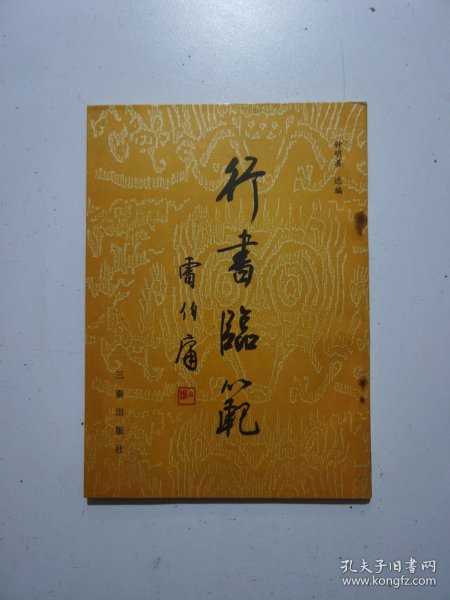 钟明善 选编
行書臨範
雷伯庸
三秦出版社
孔夫子旧书网
www.kongfz.com